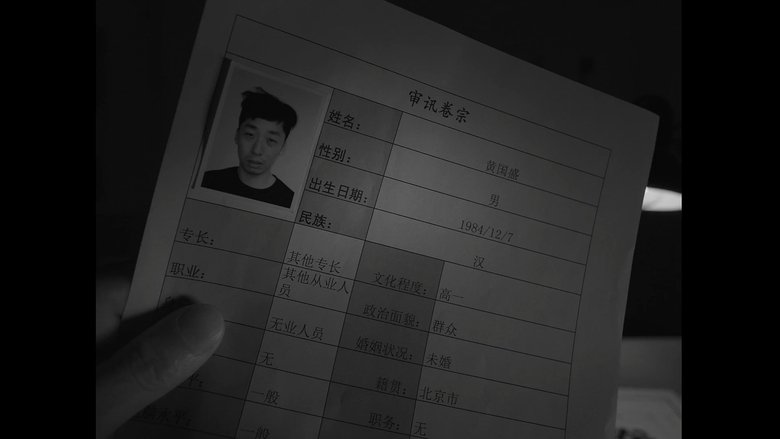 审讯卷宗
姓名: 黄国盛
性别: 男
出生日期: 1984/12/7
民族: 汉
专长: 其他专长 文化程度: 高一
职业: 其他从业人员 政治面貌: 群众
无业人员 婚姻状况: 未婚
无 籍贯: 北京市
一般 职务: 无
水平: 一般